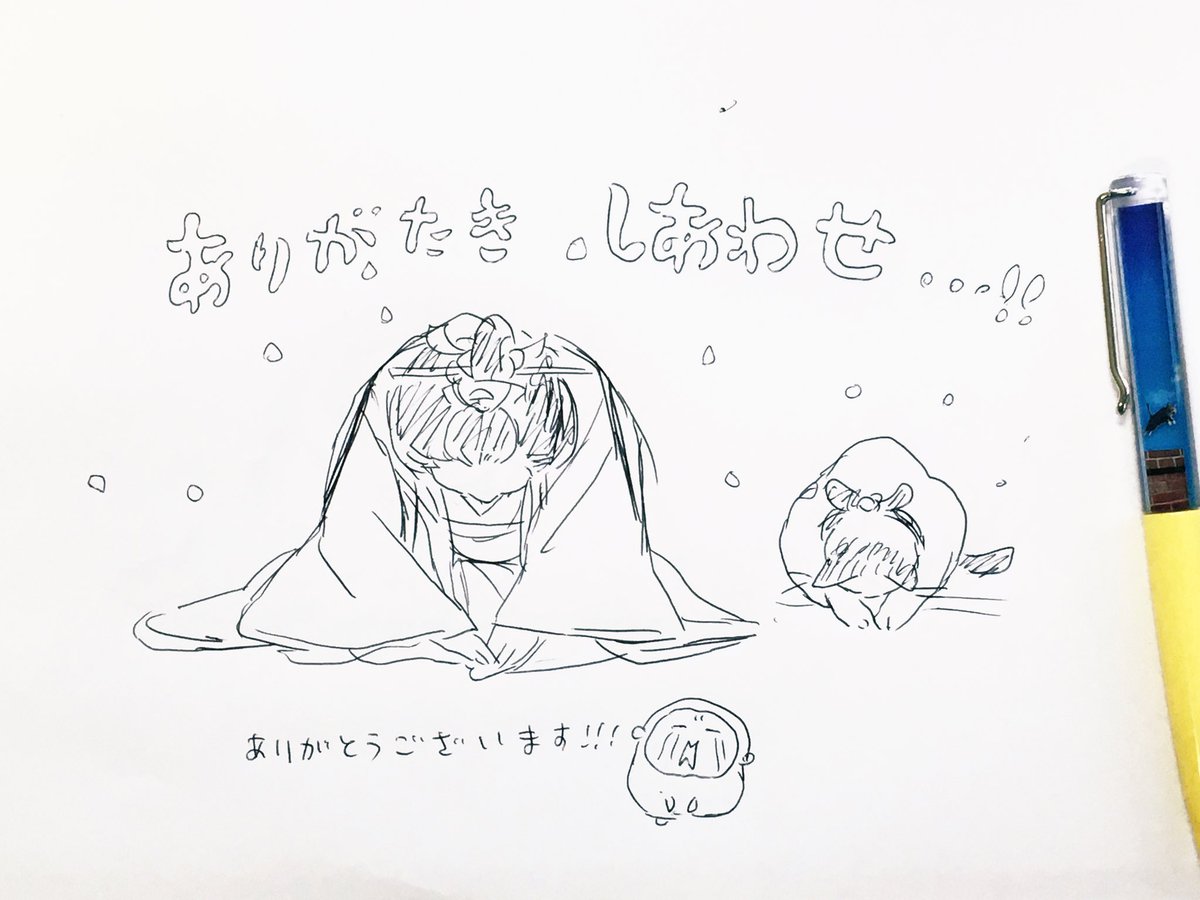 ありがたき しあわせ...!!
ありがとうございます!!!